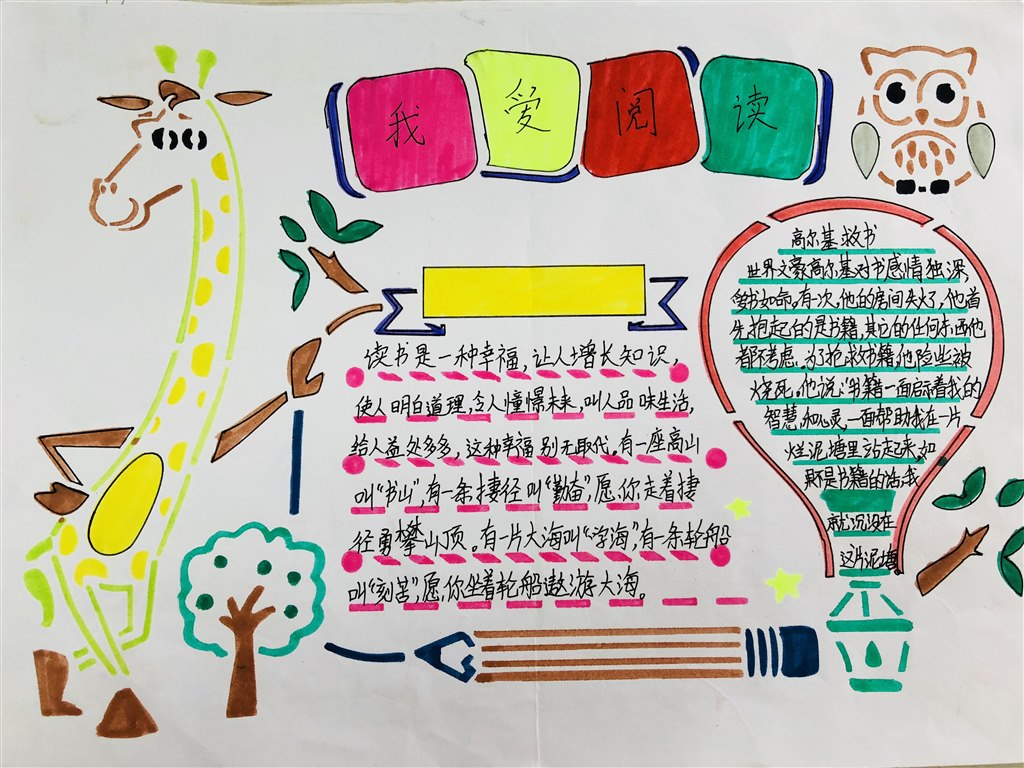 我爱阅读
读书是一种幸福，让人增长知识，
使人明白道理，令人憧憬未来，叫人品味生活，
给人益处多多，这种幸福别无取代。有一座高山
叫“书山”，有一条捷径叫“勤奋”，愿你走着捷
径勇攀山顶。有一片大海叫“学海”，有一条轮船
叫“刻苦”，愿你坐着轮船遨游大海。
高尔基救书
世界文豪高尔基对书感情独深，
爱书如命。有一次，他的房间失火了，他首
先抱起的是书籍，其它的任何东西他
都不考虑。为了抢救书籍，他险些被
烧死。他说：“书籍一面启示着我的
智慧和心灵，一面帮助我在一片
烂泥塘里站起来，如
果不是书籍的话，我
就沉没在
这片泥塘